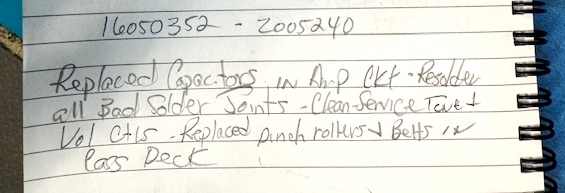 16050352 - 2005240
Replaced Capacitors in Amp Ckt - Resolder
all Bad Solder Joints - Clean - Service Tone +
Vol Ctls - Replaced pinch rollers + Belts in
Cass Deck